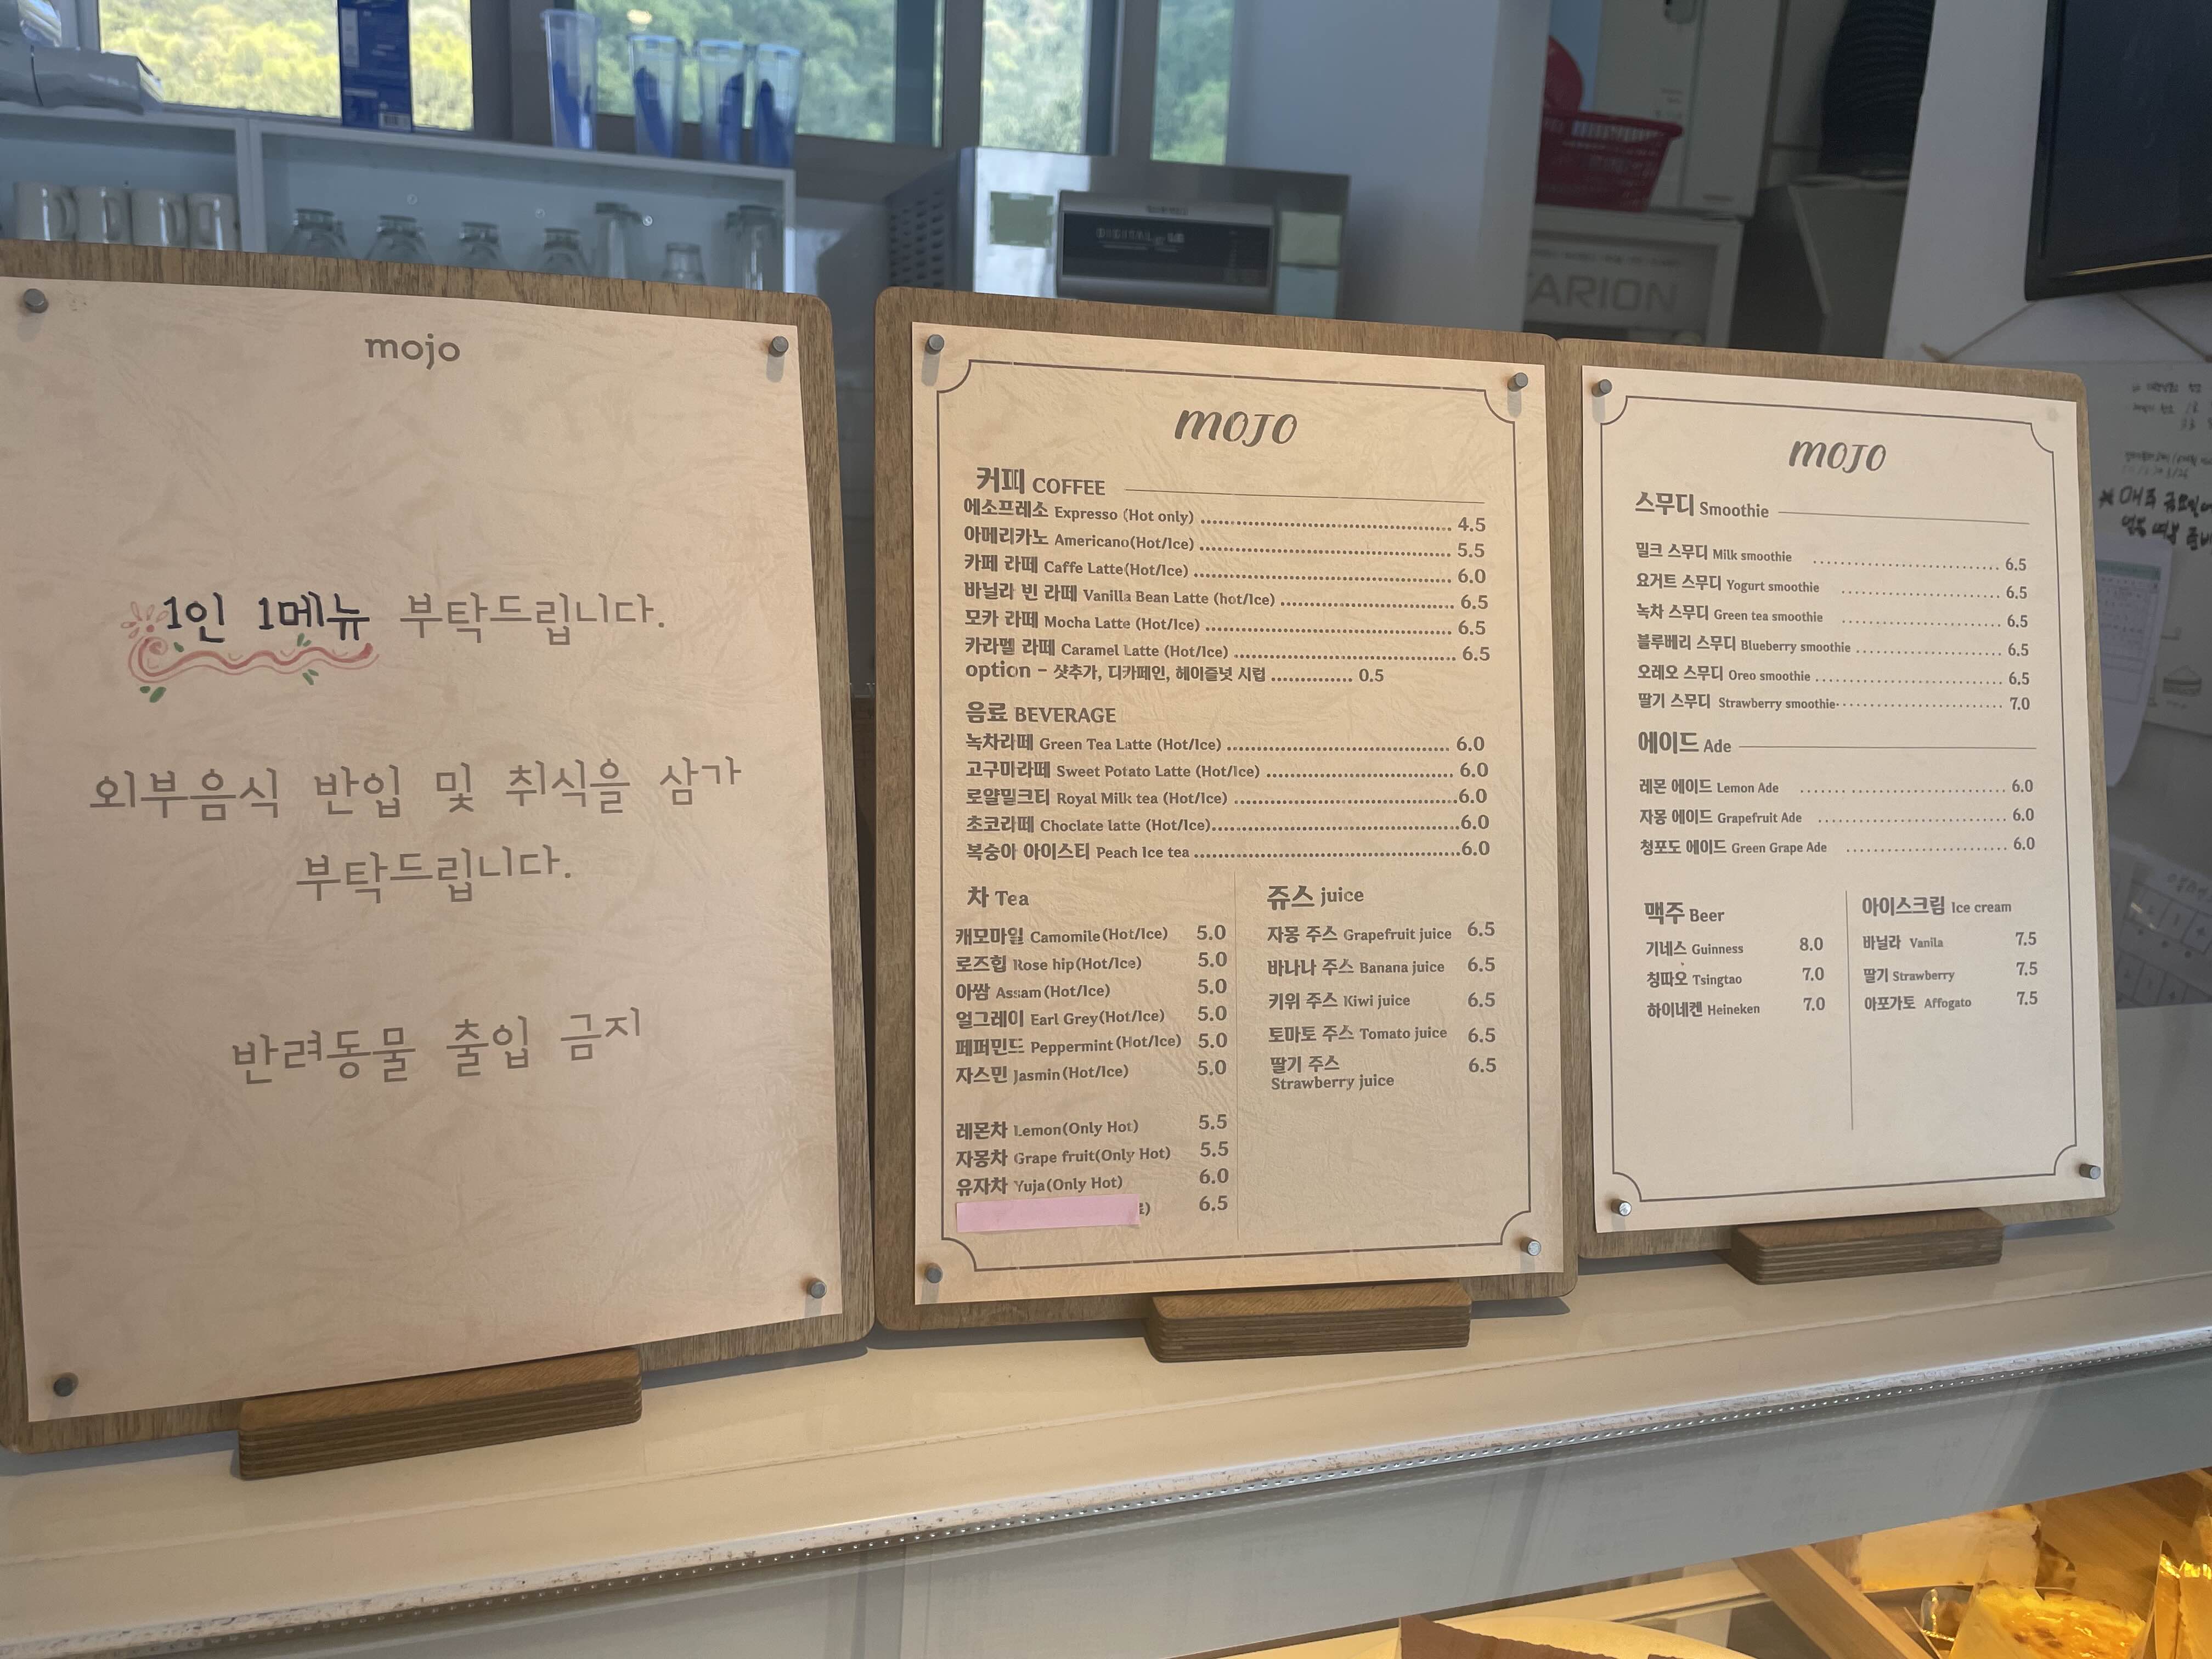 mojo
1인 1메뉴 부탁드립니다.
외부음식 반입 및 취식을 삼가
부탁드립니다.
반려동물 출입 금지
MOJO
커피 COFFEE
에소프레소 Expresso (Hot only) 4.5
아메리카노 Americano(Hot/Ice) 5.5
카페 라떼 Caffe Latte(Hot/Ice) 6.0
바닐라 빈 라떼 Vanilla Bean Latte (hot/Ice) 6.5
모카 라떼 Mocha Latte (Hot/Ice) 6.5
카라멜 라떼 Caramel Latte (Hot/Ice) 6.5
option - 샷추가, 디카페인, 헤이즐넛 시럽 0.5
음료 BEVERAGE
녹차라떼 Green Tea Latte (Hot/Ice) 6.0
고구마라떼 Sweet Potato Latte (Hot/Ice) 6.0
로얄밀크티 Royal Milk tea (Hot/Ice) 6.0
초코라떼 Choclate latte (Hot/Ice) 6.0
복숭아 아이스티 Peach Ice tea 6.0
차 Tea
캐모마일 Camomile(Hot/Ice) 5.0
로즈힙 Rose hip(Hot/Ice) 5.0
아쌈 Assam(Hot/Ice) 5.0
얼그레이 Earl Grey(Hot/Ice) 5.0
페퍼민드 Peppermint(Hot/Ice) 5.0
자스민 Jasmin(Hot/Ice) 5.0
레몬차 Lemon(Only Hot) 5.5
자몽차 Grape fruit(Only Hot) 5.5
유자차 Yuja(Only Hot) 6.0
6.5
쥬스 juice
자몽 주스 Grapefruit juice 6.5
바나나 주스 Banana juice 6.5
키위 주스 Kiwi juice 6.5
토마토 주스 Tomato juice 6.5
딸기 주스 6.5
Strawberry juice
MOJO
스무디 Smoothie
밀크 스무디 Milk smoothie 6.5
요거트 스무디 Yogurt smoothie 6.5
녹차 스무디 Green tea smoothie 6.5
블루베리 스무디 Blueberry smoothie 6.5
오레오 스무디 Oreo smoothie 6.5
딸기 스무디 Strawberry smoothie 7.0
에이드 Ade
레몬 에이드 Lemon Ade 6.0
자몽 에이드 Grapefruit Ade 6.0
청포도 에이드 Green Grape Ade 6.0
맥주 Beer
기네스 Guinness 8.0
칭따오 Tsingtao 7.0
하이네켄 Heineken 7.0
아이스크림 Ice cream
바닐라 Vanila 7.5
딸기 Strawberry 7.5
아포가토 Affogato 7.5
DIGITAL
ARION